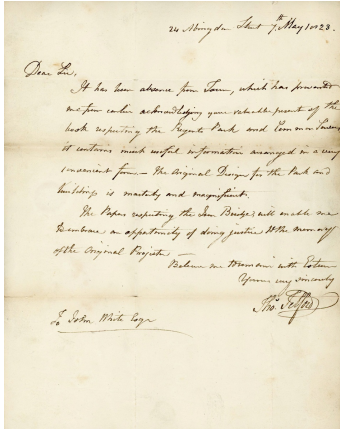 24 Abingdon Street 7th May 1823.
Dear Sir,
It has been absence from Town, which has prevented
me from earlier acknowledging your valuable present of the
book respecting the Regents Park and Common Sewers
it contains much useful information arranged in a very
convenient form – the Original Design for the Park and
buildings is masterly and magnificent.
The Papers respecting the Iron Bridge, will enable me
to embrace an opportunity of doing justice to the memory
of the Original Projector –
Believe me to remain with Esteem
Yours very sincerely
Tho. Telford
To John White Esqr